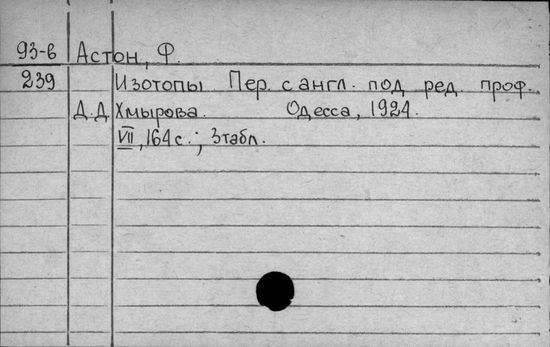 93-6 Астон, Ф.
239 Изотопы Пер. с англ. под ред. проф.
Д.Д. Хмырова. Одесса, 1924.
VII, 164 с.; 3 табл.